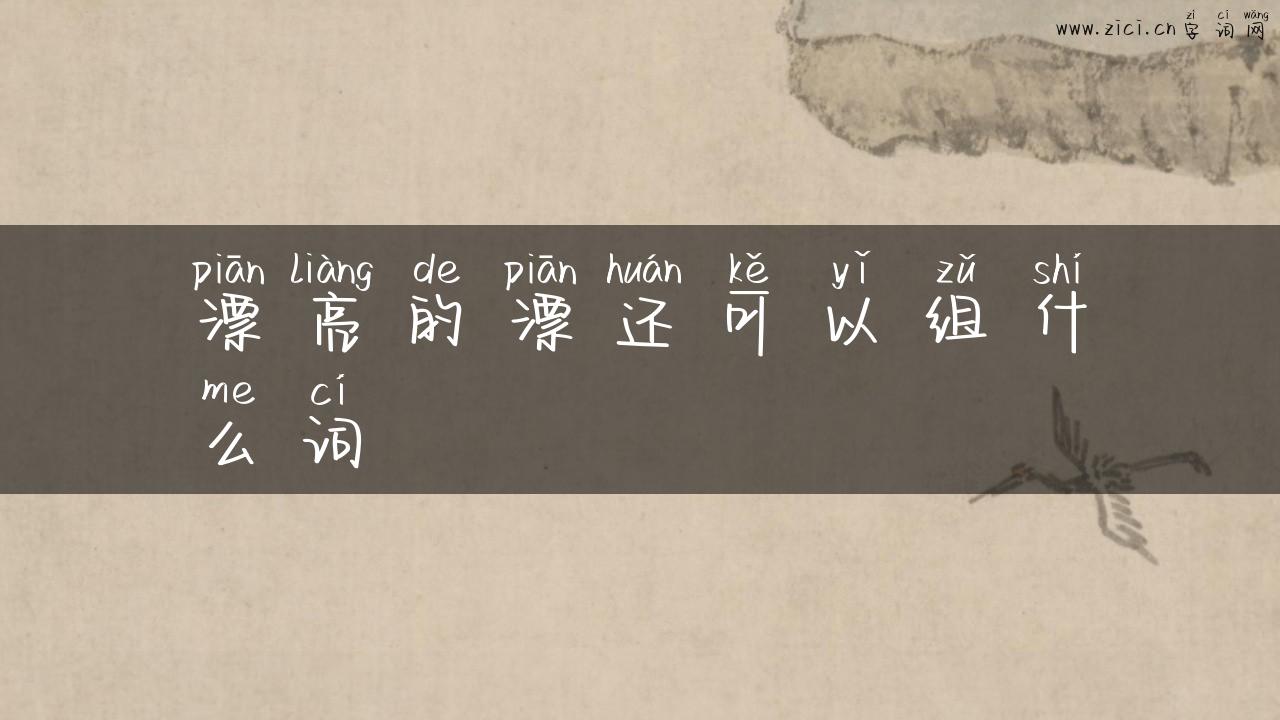 www.zici.cn zì cí wǎng
字词网
piān liàng de piān huán kě yǐ zǔ shí
漂亮的漂还可以组什
me cí
么词